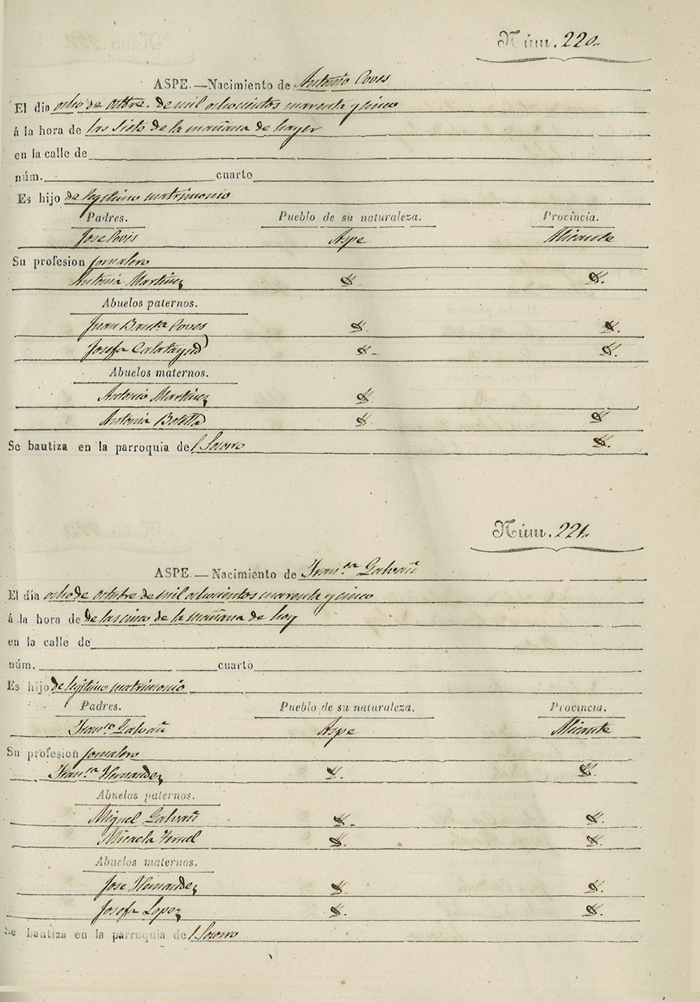 Núm. 220.
ASPE.—Nacimiento de Antonio Coves
El dia ocho de octbre. de mil ochocientos cuarenta y cinco
á la hora de las siete de la mañana de hayer
en la calle de
núm. cuarto
Es hijo de legitimo matrimonio
Padres. Pueblo de su naturaleza. Provincia.
Jose Coves Aspe Alicante
Su profesion jornalero
Antonia Martinez Y. Y.
Abuelos paternos.
Juan Bauta. Coves Y. Y.
Josefa Calatayud Y. Y.
Abuelos maternos.
Antonio Martinez Y.
Antonia Botella Y. Y.
Se bautiza en la parroquia del Socorro Y.
Núm. 221.
ASPE.—Nacimiento de Franca. Galvañ
El dia ocho de octubre de mil ochocientos cuarenta y cinco
á la hora de de las cinco de la mañana de hoy
en la calle de
núm. cuarto
Es hijo de legitimo matrimonio
Padres. Pueblo de su naturaleza. Provincia.
Franco. Galvañ Aspe Alicante
Su profesion jornalero
Franca. Hernandez Y. Y.
Abuelos paternos.
Miguel Galvañ Y. Y.
Micaela Y. Y.
Abuelos maternos.
Jose Hernandez Y. Y.
Josefa Lopez Y. Y.
Se bautiza en la parroquia del Socorro